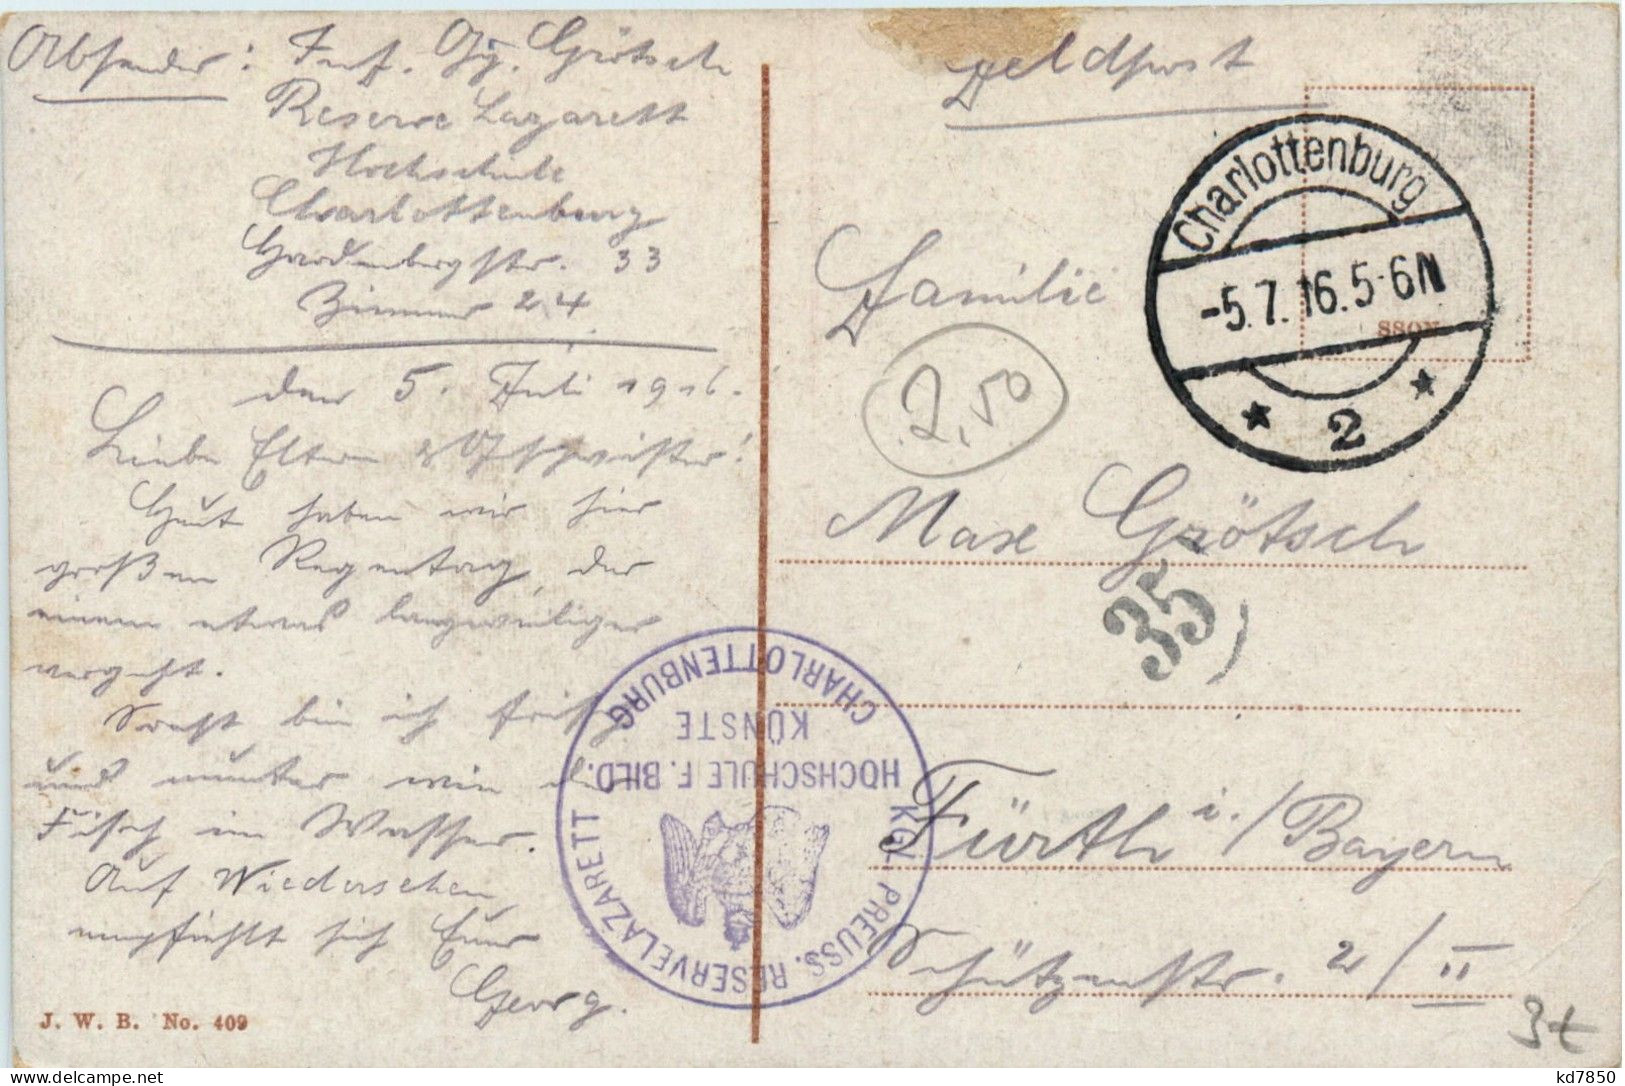 Absender: Inf. Gg. Grötsch
Reserve Lazarett
Hochschule
Charlottenburg
Hardenbergstr. 33
Zimmer 24
den 5. Juli 1916.
Liebe Eltern & Geschwister!
Heut haben wir hier
großen Regentag, der
einem etwas langweiliger
vergeht.
Sonst bin ich frisch
und munter wie der
Fisch im Wasser.
Auf Wiedersehen
empfiehlt sich Euer
Georg.
J. W. B. No. 409
Feldpost
Charlottenburg
-5.7.16.5-6N
* 2 *
Familie
2,50
Max Grötsch
35
Fürth i./Bayern
Schützenstr. 2/II
KGL. PREUSS. RESERVELAZARETT
HOCHSCHULE F. BILD.
KÜNSTE
CHARLOTTENBURG
kd7850